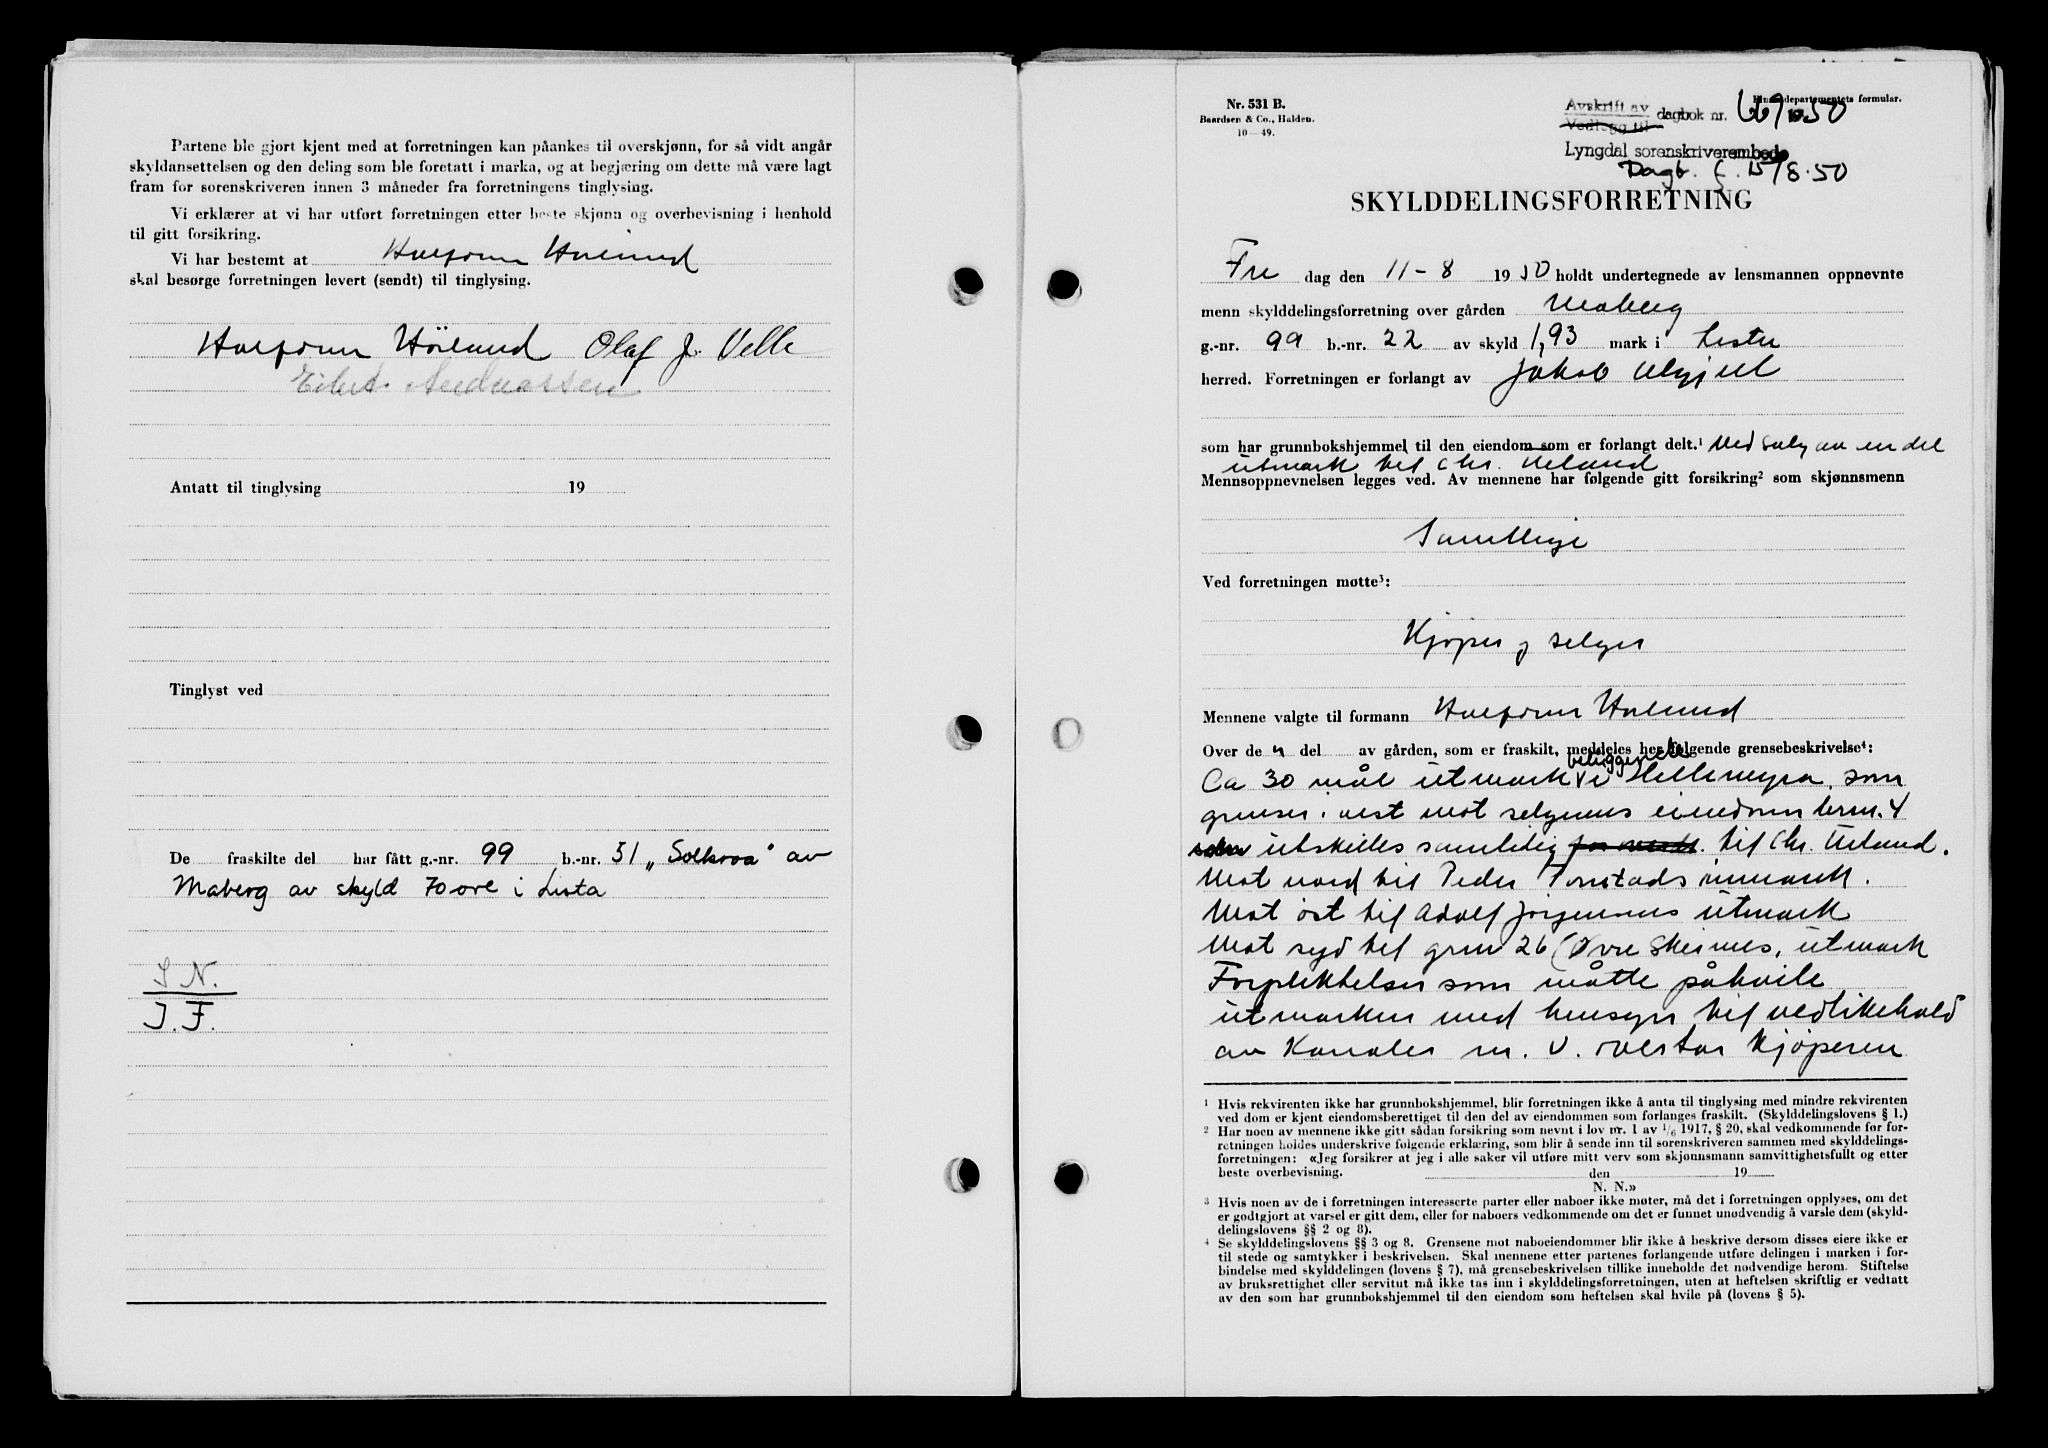 Partene ble gjort kjent med at forretningen kan påankes til overskjønn, for så vidt angår
skyldansettelsen og den deling som ble foretatt i marka, og at begjæring om dette må være lagt
fram for sorenskriveren innen 3 måneder fra forretningens tinglysing.
Vi erklærer at vi har utført forretningen etter beste skjønn og overbevisning i henhold
til gitt forsikring.
Vi har bestemt at
skal besørge forretningen levert (sendt) til tinglysing.
Olaf J. Velle
Antatt til tinglysing 19
Tinglyst ved
De fraskilte del har fått g.-nr. 99 b.-nr. 51 „Solkroa" av
Maberg av skyld 70 øre i Lista
S N.
J. F.
Nr. 531 B.
Baardsen & Co., Halden.
10—49.
Avskrift av
Vedlegg til
dagbok nr. 669 1950
Lyngdal sorenskriverembede
Dagb. f. 15/8-50
SKYLDDELINGSFORRETNING
Fre dag den 11-8 1950 holdt undertegnede av lensmannen oppnevnte
menn skylddelingsforretning over gården Maberg
g.-nr. 99 b.-nr. 22 av skyld 1,93 mark i Lista
herred. Forretningen er forlangt av Jakob
som har grunnbokshjemmel til den eiendom som er forlangt delt.¹ Ved salg av en del
utmark til Chr.
Mennsoppnevnelsen legges ved. Av mennene har følgende gitt forsikring² som skjønnsmenn
Samtlige
Ved forretningen møtte³:
Kjøper og selger
Mennene valgte til formann
Over de n del av gården, som er fraskilt, meddeles her følgende grensebeskrivelse⁴:
beliggende
Ca 30 mål utmark i Hellemyra, som
grenser i vest mot selgerens eiendom
utskilles samtidig for verdt. til Chr.
Mot nord til Peder innmark.
Mot øst til Adolf Jørgensens utmark
Mot syd til grnr 26 (Øvre Skeimes, utmark
Forpliktelser som måtte påhvile
utmarken med hensyn til vedlikehold
av Kanaler m. v. overtar kjøperen
¹ Hvis rekvirenten ikke har grunnbokshjemmel, blir forretningen ikke å anta til tinglysing med mindre rekvirenten
ved dom er kjent eiendomsberettiget til den del av eiendommen som forlanges fraskilt. (Skylddelingslovens § 1.)
² Har noen av mennene ikke gitt sådan forsikring som nevnt i lov nr. 1 av 1/6 1917, § 20, skal vedkommende før for-
retningen holdes underskrive følgende erklæring, som blir å sende inn til sorenskriveren sammen med skylddelings-
forretningen: «Jeg forsikrer at jeg i alle saker vil utføre mitt verv som skjønnsmann samvittighetsfullt og etter
beste overbevisning. den 19
N. N.»
³ Hvis noen av de i forretningen interesserte parter eller naboer ikke møter, må det i forretningen opplyses, om det
er godtgjort at varsel er gitt dem, eller for naboers vedkommende om det er funnet unødvendig å varsle dem (skyld-
delingslovens §§ 2 og 8).
⁴ Se skylddelingslovens §§ 3 og 8. Grensene mot naboeiendommer blir ikke å beskrive dersom disses eiere ikke er
til stede og samtykker i beskrivelsen. Skal mennene etter partenes forlangende utføre delingen i marken i for-
bindelse med skylddelingen (lovens § 7), må grensebeskrivelsen tillike inneholde det nødvendige herom. Stiftelse
av bruksrettighet eller servitut må ikke tas inn i skylddelingsforretningen, uten at heftelsen skriftlig er vedtatt
av den som har grunnbokshjemmel til den eiendom som heftelsen skal hvile på (lovens § 5).